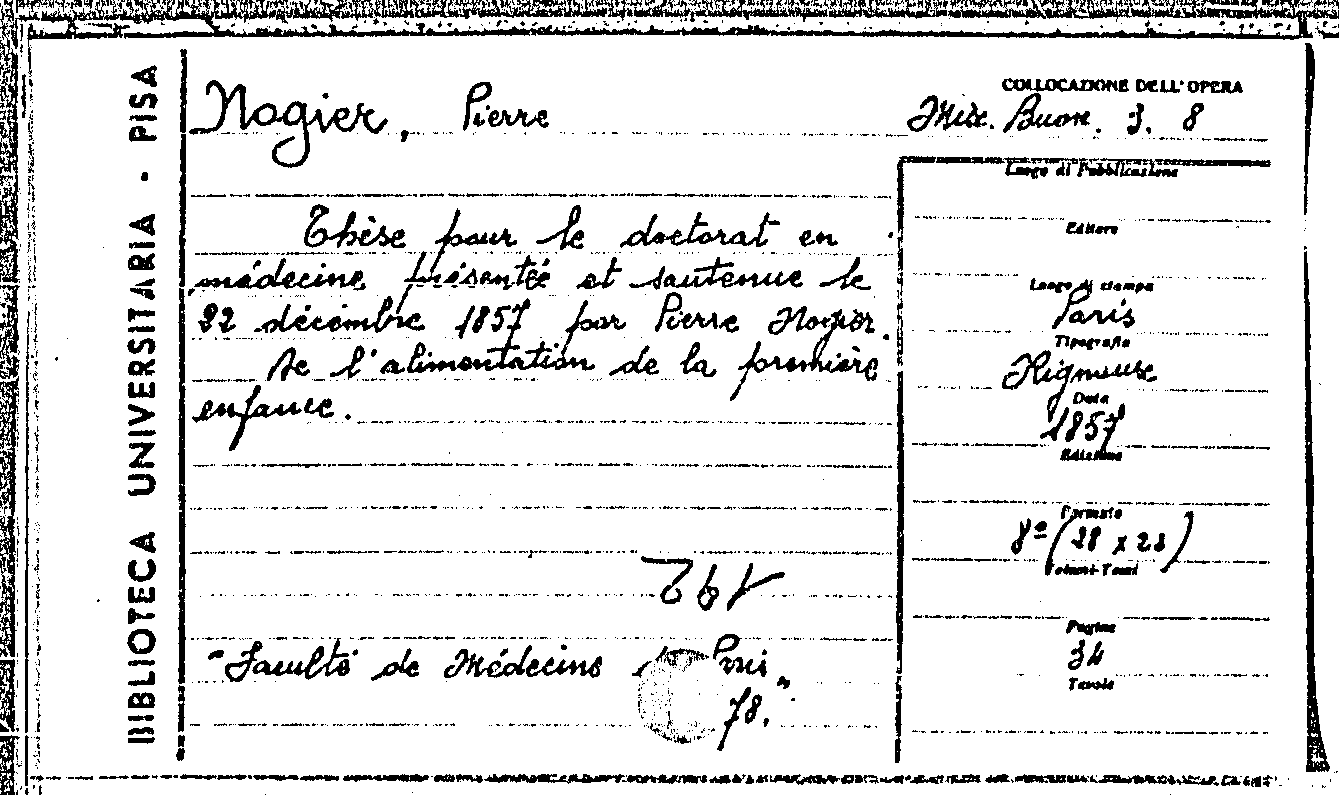 BIBLIOTECA UNIVERSITARIA · PISA
COLLOCAZIONE DELL'OPERA
Nogier, Pierre
Misc. Buon. 3. 8
Thèse pour le doctorat en
médecine présentée et soutenue le
22 décembre 1857 par Pierre Nogier.
De l'alimentation de la première
enfance.
"Faculté de Médecine Paris"
78.
Luogo di Pubblicazione
Editore
Luogo di stampa
Paris
Tipografia
Rignoux
Data
1857
Edizione
Formato
8º (28 x 23)
Volumi-Tomi
Pagine
34
Tavole